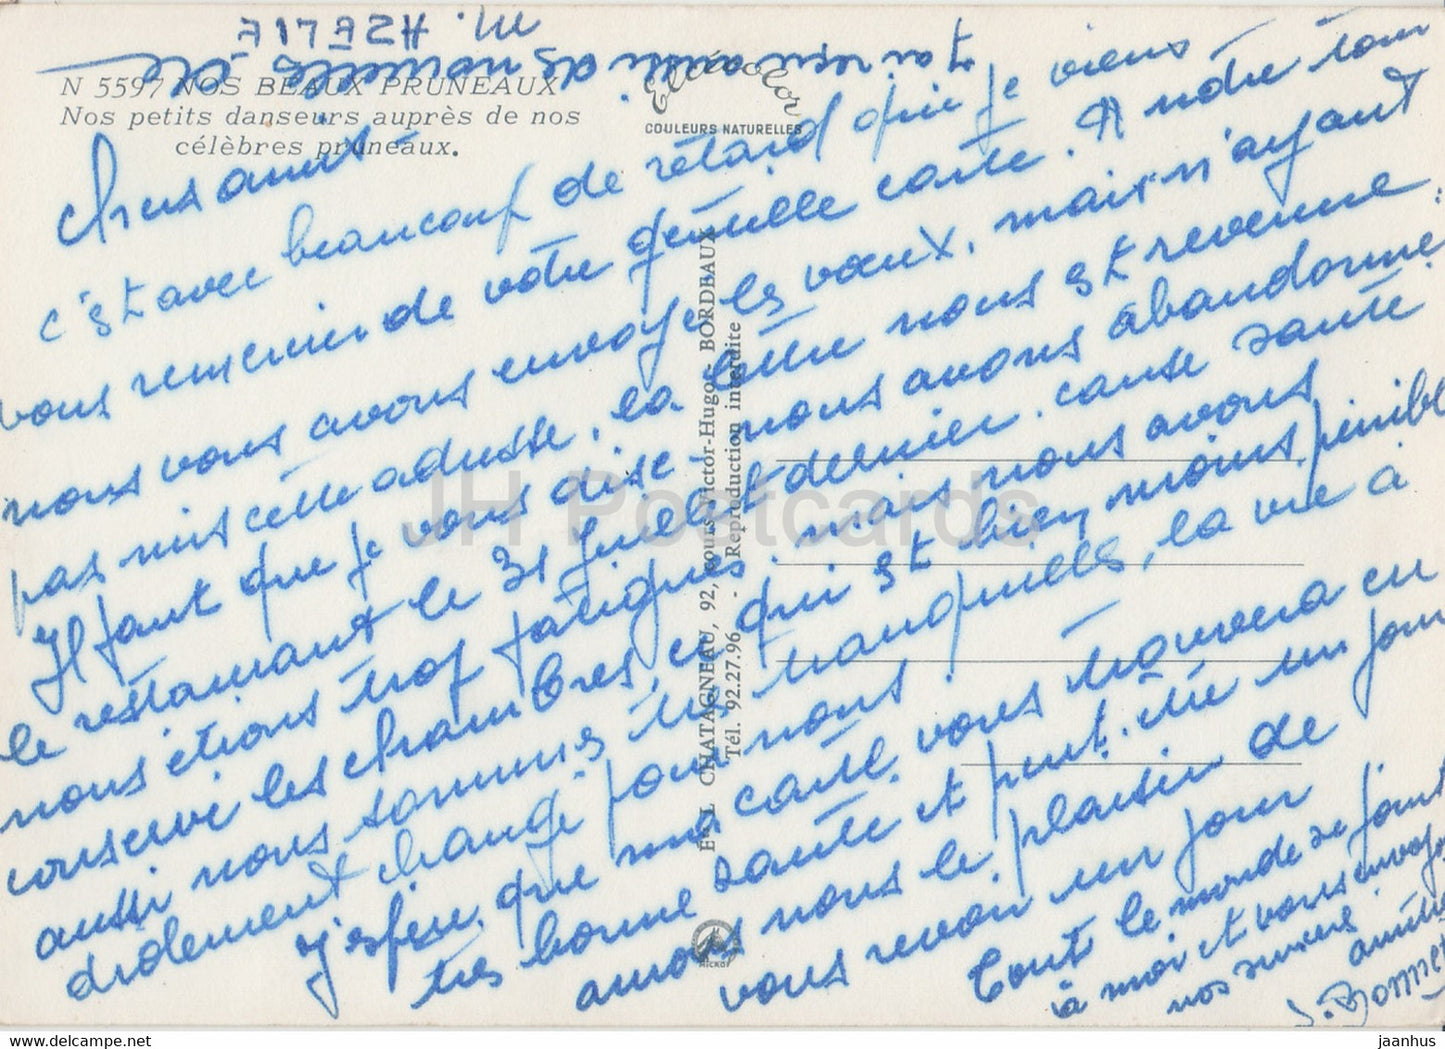 N 5597 NOS BEAUX PRUNEAUX
Nos petits danseurs auprès de nos
célèbres pruneaux.
Elcécolor
COULEURS NATURELLES
Chers amis
c'est avec beaucoup de retard que je viens
vous remercier de votre gentille carte. A notre tour
nous vous avons envoyé les vœux, mais n'ayant
pas mis cette adresse, la lettre nous est revenue.
Il faut que je vous dise - nous avons abandonné
le restaurant le 31 Juillet dernier. cause santé
nous étions trop fatigués. mais nous avons
conservé les chambres, ce qui est bien moins pénible
aussi nous sommes très tranquilles, la vie à
drôlement changé pour nous.
j'espère que ma carte vous trouvera en
très bonne santé et peut-être un jour
aurons nous le plaisir de
vous revoir un jour
Tout le monde se joint
à moi et vous envoye
nos
amitiés
J. Bonnet
J'ai reçu aussi des nouvelles de
M.
EL CHATAGNEAU, 92, cours Victor-Hugo, BORDEAUX
Tél. 92.27.96 - Reproduction interdite
JH Postcards
www.delcampe.net
jaanhus